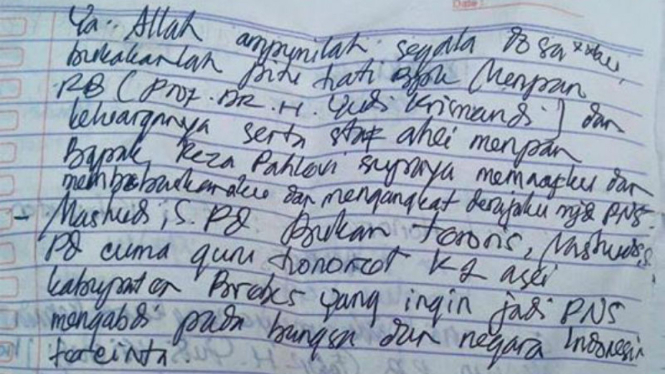 Date :
Ya Allah ampunilah segala dosa xxku,
bukakanlah pintu hati Bpk (Menpan
RB (Prof. DR. H. Yudi Krisnandi) dan
keluarganya serta staf ahli menpan
Bapak Reza Pahlovi supaya memaafku dan
membebaskanaku dan mengangkat derajaku mjd PNS.
- Mashudi, S.Pd Bukan teroris, Mashudi, S.
Pd cuma guru honorer K2 asli
kabupaten Brebes yang ingin jadi PNS
mengabdi pada bangsa dan negara Indonesia
tercinta.